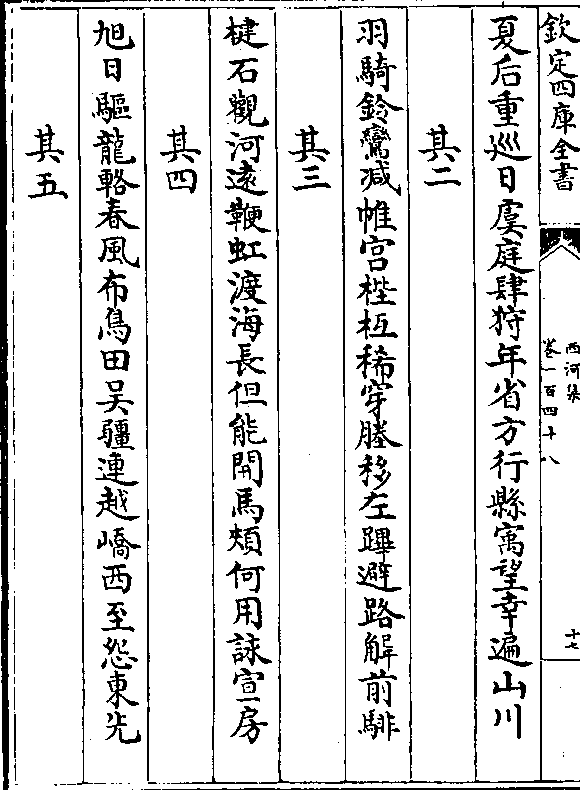 欽定四庫全書
西河集
卷一百四十八
十七
夏后重巡日虞庭肆狩年省方行縣寓望幸遍山川
其二
羽騎鈴鸞减帷宫梐枑稀穿塍移左蹕避路解前騑
其三
楗石觀河遠鞭虹渡海長但能開馬頰何用誎宣房
其四
旭日驅龍輅春風布鳥田吴疆連越嶠西至怨東先
其五